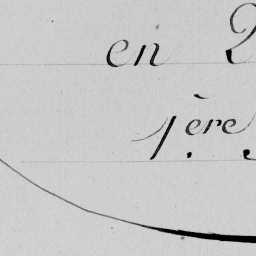 en 2
1.ère